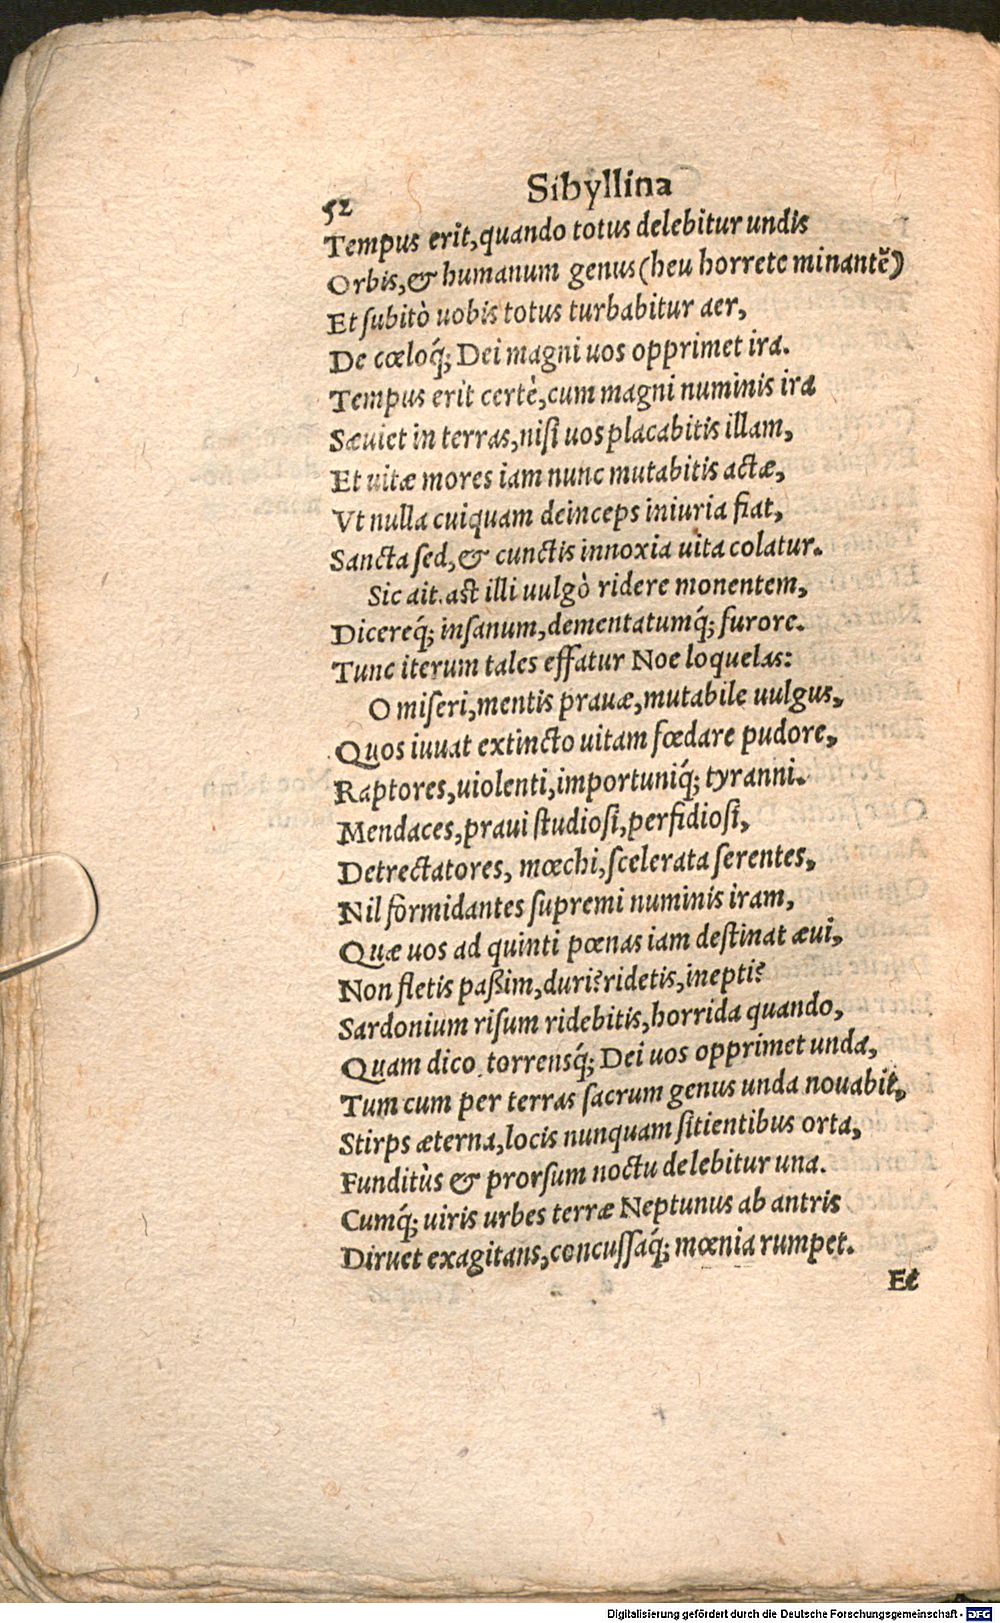 Sibyllina
52
Tempus erit, quando totus delebitur undis
Orbis, & humanum genus (heu horrete minantẽ)
Et ſubitò uobis totus turbabitur aer,
De cœloq́; Dei magni uos opprimet ira.
Tempus erit certè, cum magni numinis ira
Sæuiet in terras, niſi uos placabitis illam,
Et uitæ mores iam nunc mutabitis actæ,
Vt nulla cuiquam deinceps iniuria fiat,
Sancta ſed, & cunctis innoxia uita colatur.
Sic ait. aſt illi uulgò ridere monentem,
Dicereq́; inſanum, dementatumq́; furore.
Tunc iterum tales effatur Noe loquelas:
O miſeri, mentis prauæ, mutabile uulgus,
Quos iuuat extincto uitam fœdare pudore,
Raptores, uiolenti, importuniq́; tyranni.
Mendaces, praui ſtudioſi, perfidioſi,
Detrectatores, mœchi, ſcelerata ſerentes,
Nil formidantes ſupremi numinis iram,
Quæ uos ad quinti pœnas iam deſtinat æui,
Non fletis paßim, duri? ridetis, inepti?
Sardonium riſum ridebitis, horrida quando,
Quam dico, torrensq́; Dei uos opprimet unda,
Tum cum per terras ſacrum genus unda nouabit,
Stirps æterna, locis nunquam ſitientibus orta,
Funditùs & prorſum noctu delebitur una.
Cumq́; uiris urbes terræ Neptunus ab antris
Diruet exagitans, concuſſaq́; mœnia rumpet.
Et
Digitalisierung gefördert durch die Deutsche Forschungsgemeinschaft - DFG